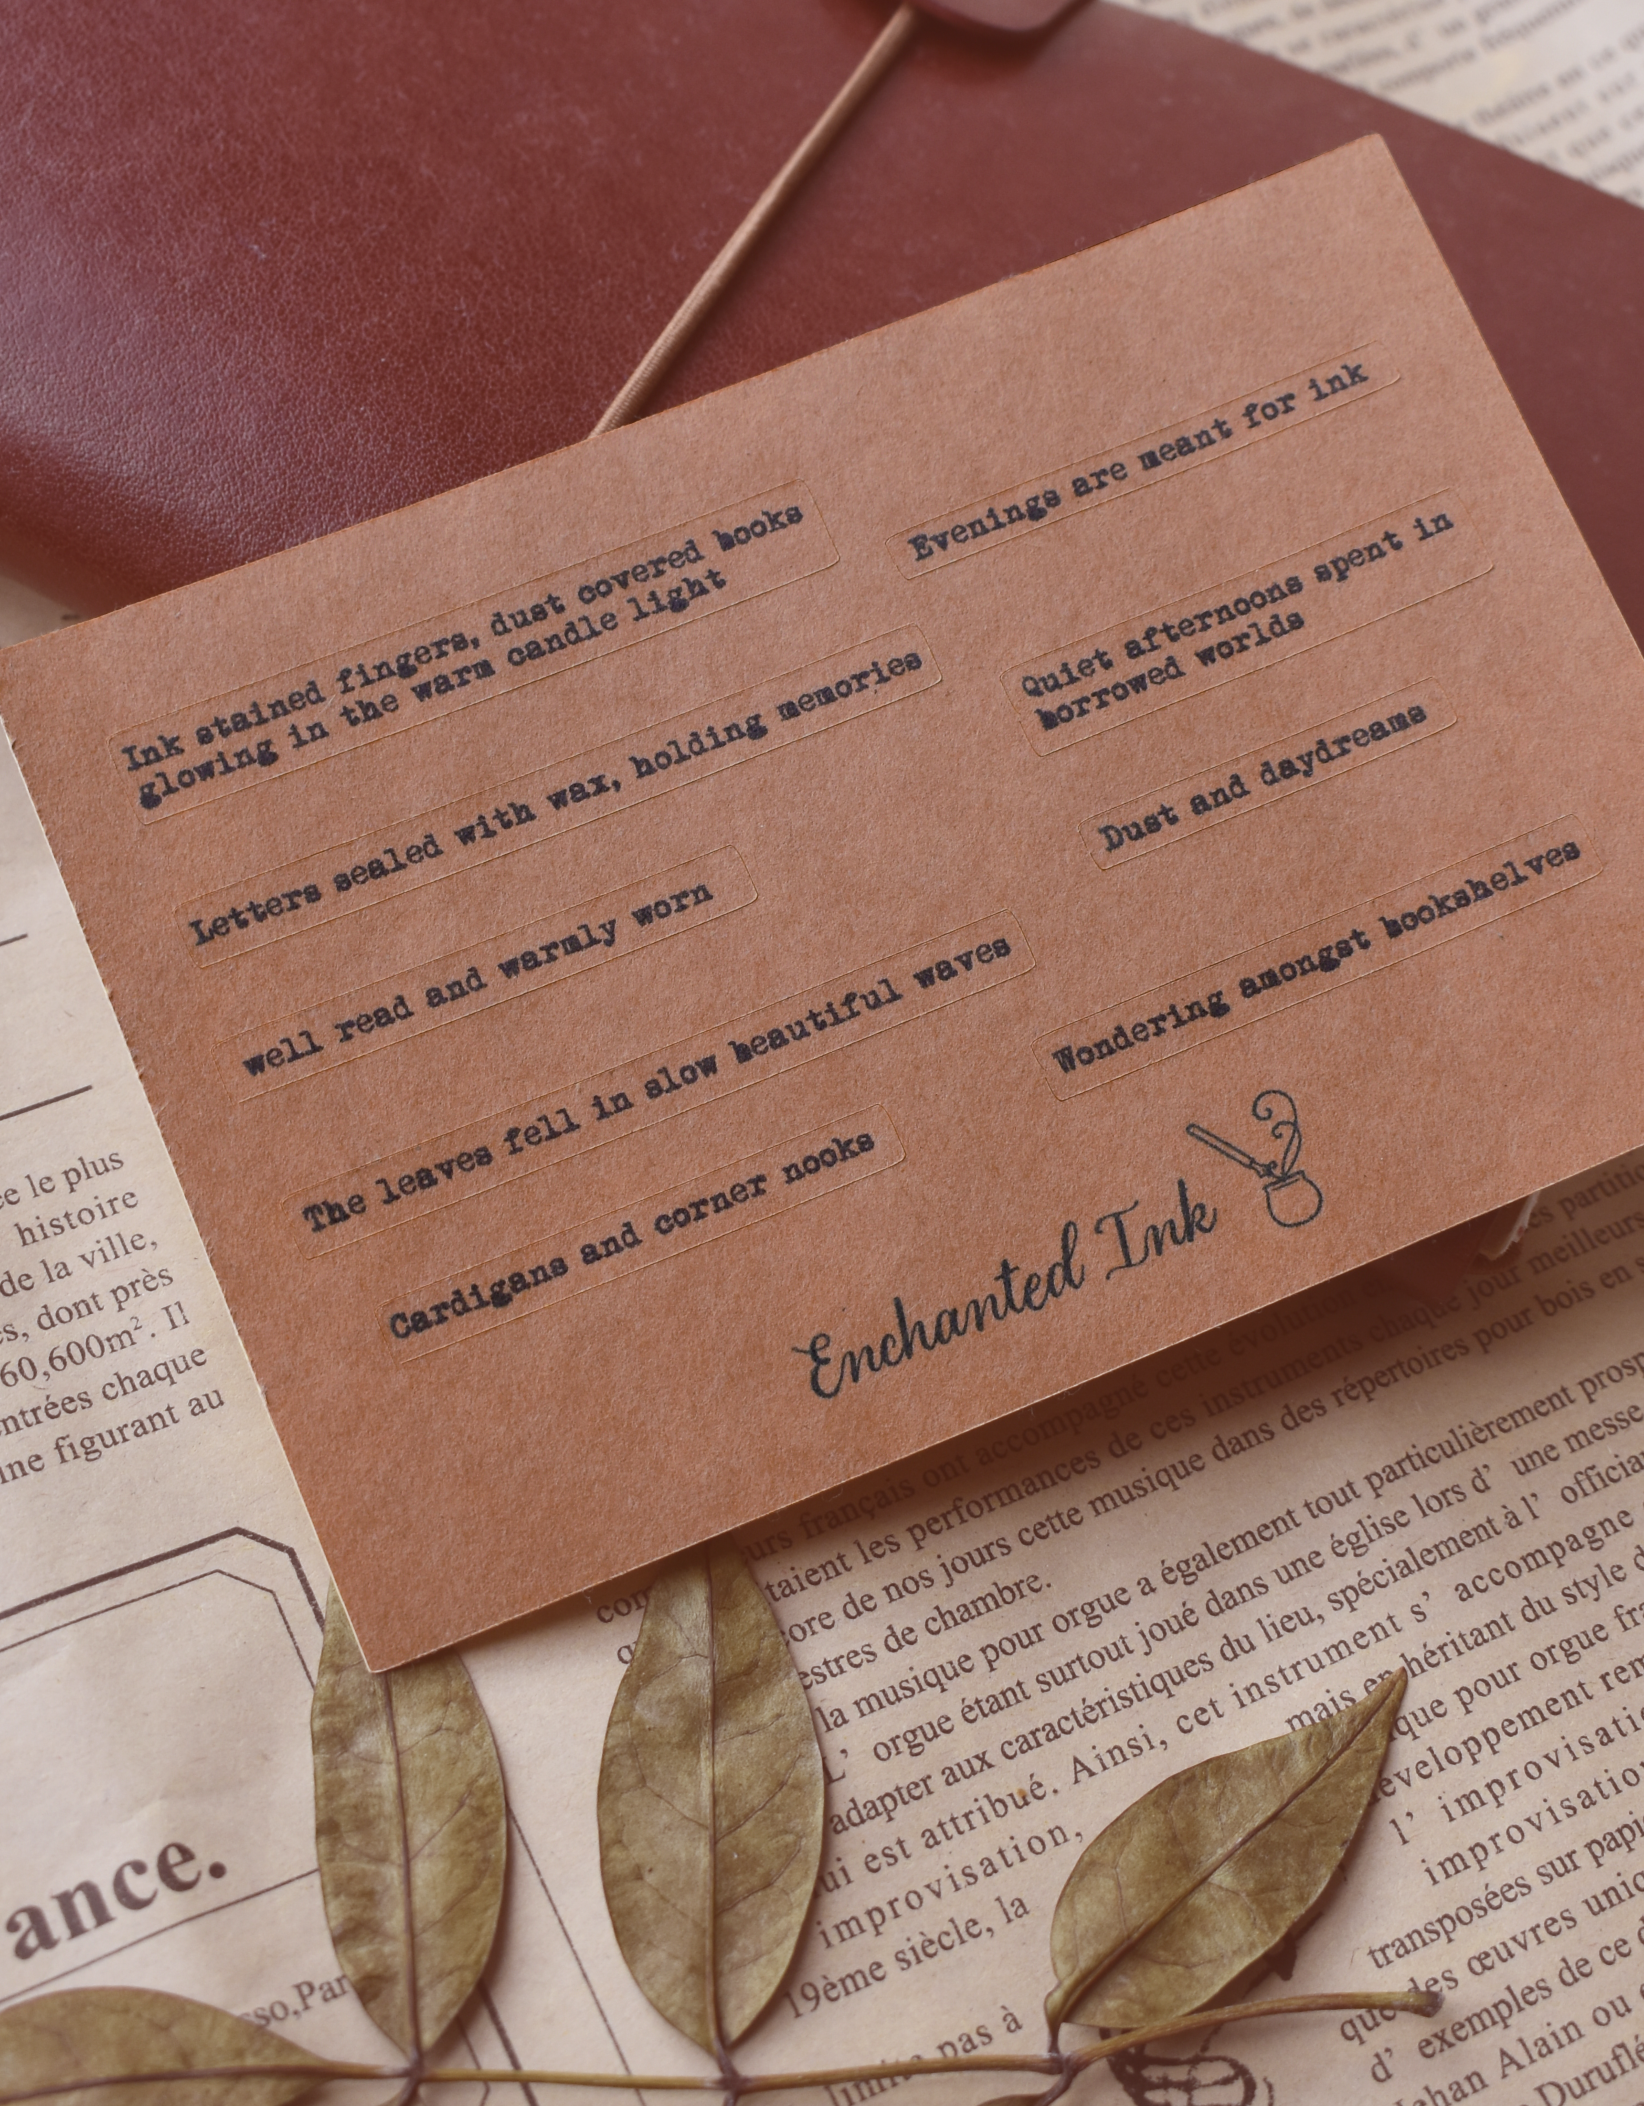 Ink stained fingers, dust covered books
glowing in the warm candle light
Letters sealed with wax, holding memories
well read and warmly worn
The leaves fell in slow beautiful waves
Cardigans and corner nooks
Evenings are meant for ink
Quiet afternoons spent in
borrowed worlds
Dust and daydreams
Wondering amongst bookshelves
Enchanted Ink
le plus
histoire
de la ville,
dont près
60,600m². Il
chaque
figurant au
ance.
français ont accompagné cette évolution
les performances de ces instruments chaque jour meilleurs
de nos jours cette musique dans des répertoires pour bois en
de chambre.
la musique pour orgue a également tout particulièrement
L' orgue étant surtout joué dans une église lors d' une messe
adapter aux caractéristiques du lieu, spécialement à l'
est attribué. Ainsi, cet instrument s' accompagne
improvisation, mais en héritant du style
19ème siècle, la
pour orgue
l' improvisation
transposées sur
des œuvres
d' exemples de ce
Alain ou
pas à